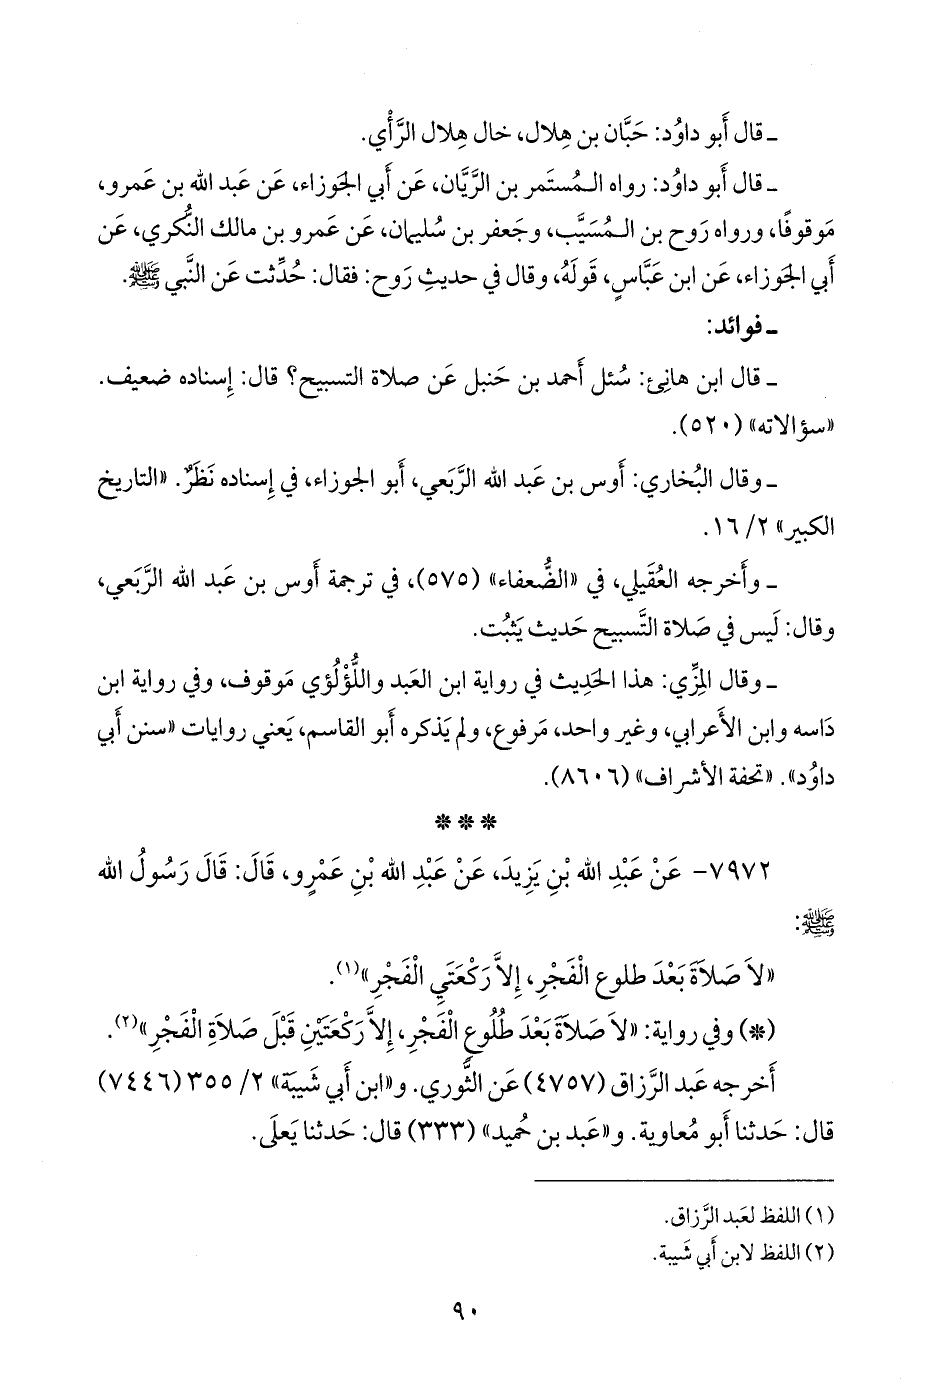 ـ قال أَبو داوُد: حَبَّان بن هِلال، خال هِلال الرَّأْي.
ـ قال أَبو داوُد: رواه المُستَمر بن الرَّيَّان، عَن أَبي الجَوزاء، عَن عَبد الله بن عَمرو،
مَوقوفًا، ورواه رَوح بن المُسَيَّب، وجَعفر بن سُليمان، عَن عَمرو بن مالك النُّكري، عَن
أَبي الجَوزاء، عَن ابن عَبَّاسٍ، قَولَهُ، وقال في حديثِ رَوح: فقال: حُدِّثت عَن النَّبي ﷺ.
ـ فوائد:
ـ قال ابن هانِئ: سُئل أَحمد بن حَنبل عَن صلاة التسبيح؟ قال: إِسناده ضعيف.
«سؤالاته» (٥٢٠).
ـ وقال البُخاري: أَوس بن عَبد الله الرَّبَعي، أَبو الجوزاء، في إِسناده نَظَرٌ. «التاريخ
الكبير» ٢/ ١٦.
ـ وأَخرجه العُقَيلي، في «الضُّعفاء» (٥٧٥)، في ترجمة أَوس بن عَبد الله الرَّبَعي،
وقال: لَيس في صَلاة التَّسبيح حَديث يَثبُت.
ـ وقال المِزِّي: هذا الحَدِيث في رواية ابن العَبد واللُّؤْلُؤي مَوقوف، وفي رواية ابن
دَاسه وابن الأَعرابي، وغير واحد، مَرفوع، ولم يَذكره أَبو القاسم، يَعني روايات «سنن أَبي
داوُد». «تحفة الأَشراف» (٨٦٠٦).
* * *
٧٩٧٢- عَنْ عَبْدِ الله بْنِ يَزِيدَ، عَنْ عَبْدِ الله بْنِ عَمْرٍو، قَالَ: قَالَ رَسُولُ الله
ﷺ:
«لاَ صَلاَةَ بَعْدَ طلوعِ الْفَجْرِ، إِلاَّ رَكْعَتَيِ الْفَجْرِ»(١).
(*) وفي رواية: «لاَ صَلاَةَ بَعْدَ طُلُوعِ الْفَجْرِ، إِلاَّ رَكْعَتَيْنِ قَبْلَ صَلاَةِ الْفَجْرِ»(٢).
أَخرجه عَبد الرَّزاق (٤٧٥٧) عَن الثَّوري. و«ابن أَبي شَيبَة» ٢/ ٣٥٥ (٧٤٤٦)
قال: حَدثنا أَبو مُعاوية. و«عَبد بن حُميد» (٣٣٣) قال: حَدثنا يَعلَى.
(١) اللفظ لعَبد الرَّزاق.
(٢) اللفظ لابن أَبي شَيبة.
٩٠